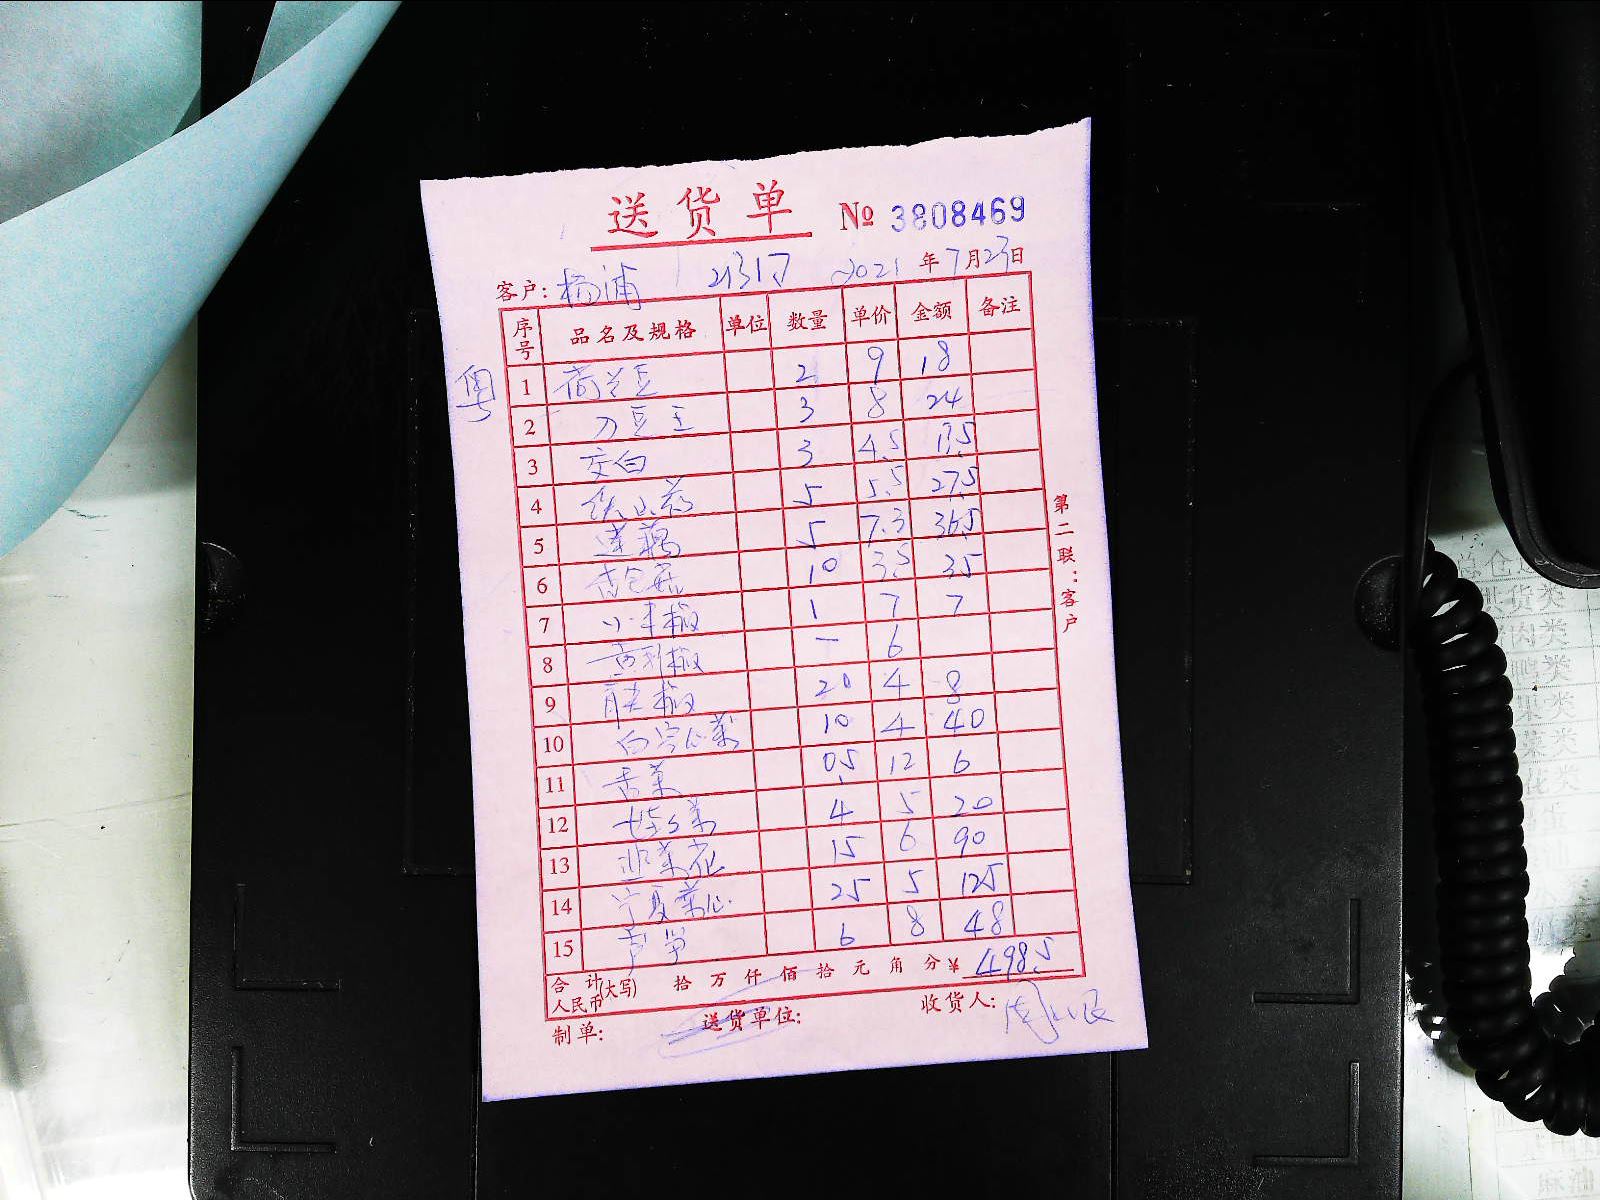 送货单 № 3808469
客户: 杨浦 2021 年 7 月 23 日
序号 品名及规格 单位 数量 单价 金额 备注
粤
1 荷兰豆 2 9 18
2 刀豆王 3 8 24
3 茭白 3 4.5 13.5
4 铁山药 5 5.5 27.5
5 莲藕 5 7.3 36.5
6 杏包菇 10 3.5 35
7 小米椒 1 7 7
8 黄利椒 一 6
9 青尖椒 20 4 8
10 白空心菜 10 4 40
11 苦菜 0.5 12 6
12 4 5 20
13 韭菜花 15 6 90
14 宁夏菜心 25 5 125
15 芦笋 6 8 48
合计人民币(大写) 拾 万 仟 佰 拾 元 角 分 ¥ 498.5
制单: 送货单位: 收货人:
第二联:客户
货类
肉类
鸭类
果类
菜类
花类